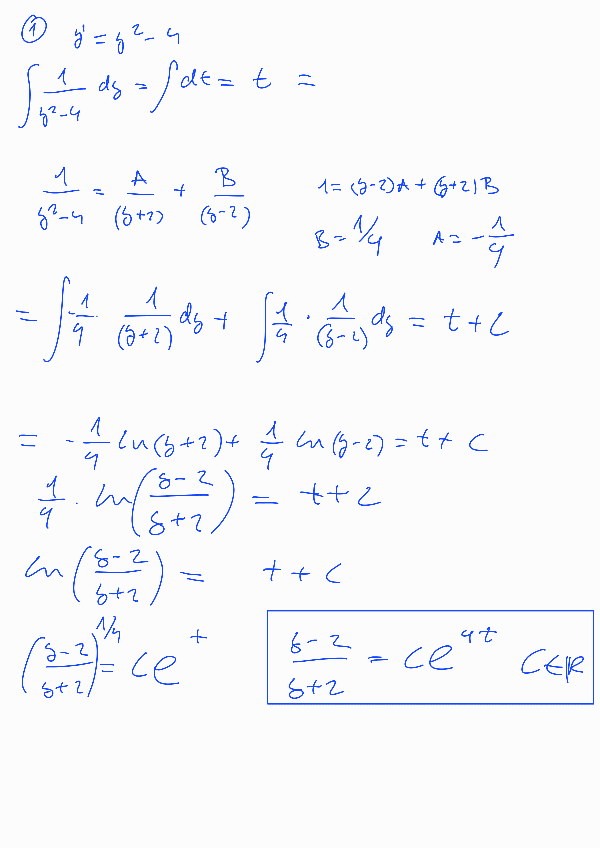 ① y' = y² - 4
∫ 1/(y²-4) dy = ∫ dt = t =
1/(y²-4) = A/(y+2) + B/(y-2)    1 = (y-2)A + (y+2)B
B = 1/4    A = -1/4
= ∫ -1/4 · 1/(y+2) dy + ∫ 1/4 · 1/(y-2) dy = t + C
= -1/4 ln(y+2) + 1/4 ln(y-2) = t + C
1/4 · ln((y-2)/(y+2)) = t + C
ln((y-2)/(y+2)) = t + C
((y-2)/(y+2))^(1/4) = Ce^t    (y-2)/(y+2) = Ce^(4t)    C∈ℝ